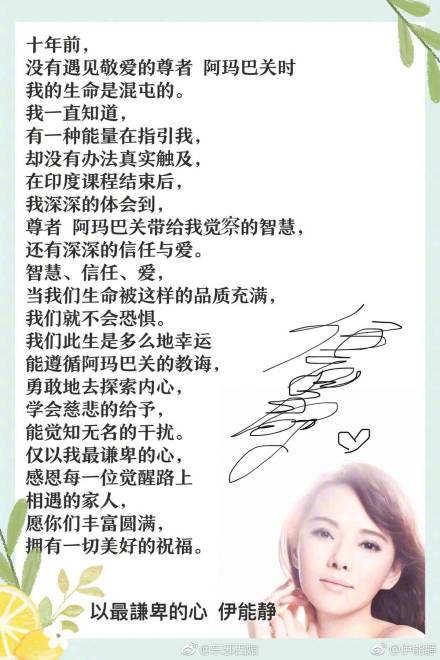 十年前，
没有遇见敬爱的尊者 阿玛巴关时
我的生命是混屯的。
我一直知道，
有一种能量在指引我，
却没有办法真实触及，
在印度课程结束后，
我深深的体会到，
尊者 阿玛巴关带给我觉察的智慧，
还有深深的信任与爱。
智慧、信任、爱，
当我们生命被这样的品质充满，
我们就不会恐惧。
我们此生是多么地幸运
能遵循阿玛巴关的教诲，
勇敢地去探索内心，
学会慈悲的给予，
能觉知无名的干扰。
仅以我最谦卑的心，
感恩每一位觉醒路上
相遇的家人，
愿你们丰富圆满，
拥有一切美好的祝福。
以最謙卑的心 伊能静
@伊能静